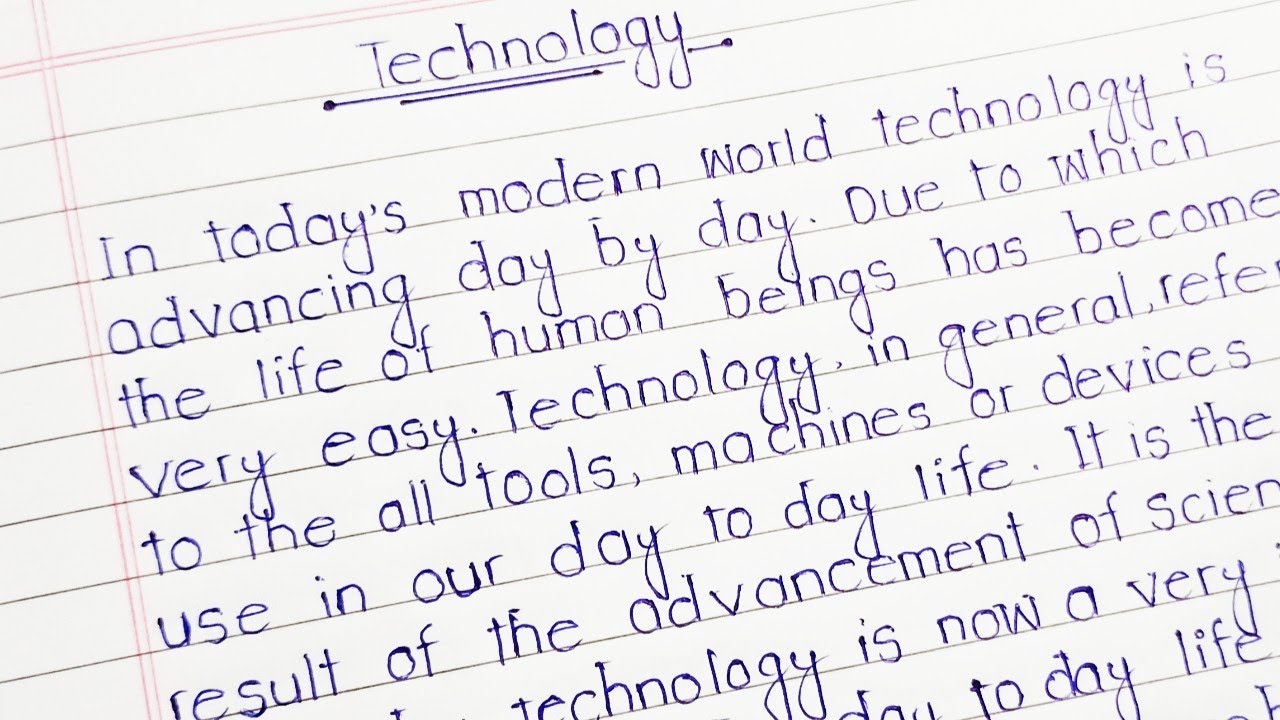 Technology
In today's modern world technology is
advancing day by day. Due to which
the life of human beings has become
very easy. Technology, in general, refer
to the all tools, machines or devices
use in our day to day life. It is the
result of the advancement of scien
technology is now a very
day to day life